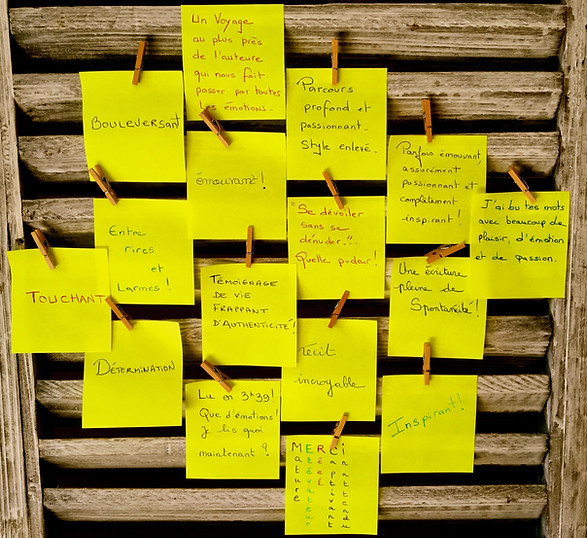 Un Voyage
au plus près
de l'auteure
qui nous fait
passer par toutes
les émotions.
BOULEVERSANT
Parcours
profond et
passionnant.
Style enlevé.
émouvant !
Parfois émouvant,
assurément
passionnant et
complètement
inspirant !
J'ai bu tes mots
avec beaucoup de
plaisir, d'émotion
et de passion.
"Se dévoiler
sans se
dénuder."
Quelle pudeur !
Entre
rires
et
Larmes !
TOUCHANT
TÉMOIGNAGE
DE VIE
FRAPPANT
D'AUTHENTICITÉ !
Une écriture
pleine de
Spontanéité !
DÉTERMINATION
récit
incroyable
Lu en 3h39 !
Que d'émotions !
Je lis quoi
maintenant ?
Inspirant !
MERCI
ature
lévateur
éel
aptivant
nattendu